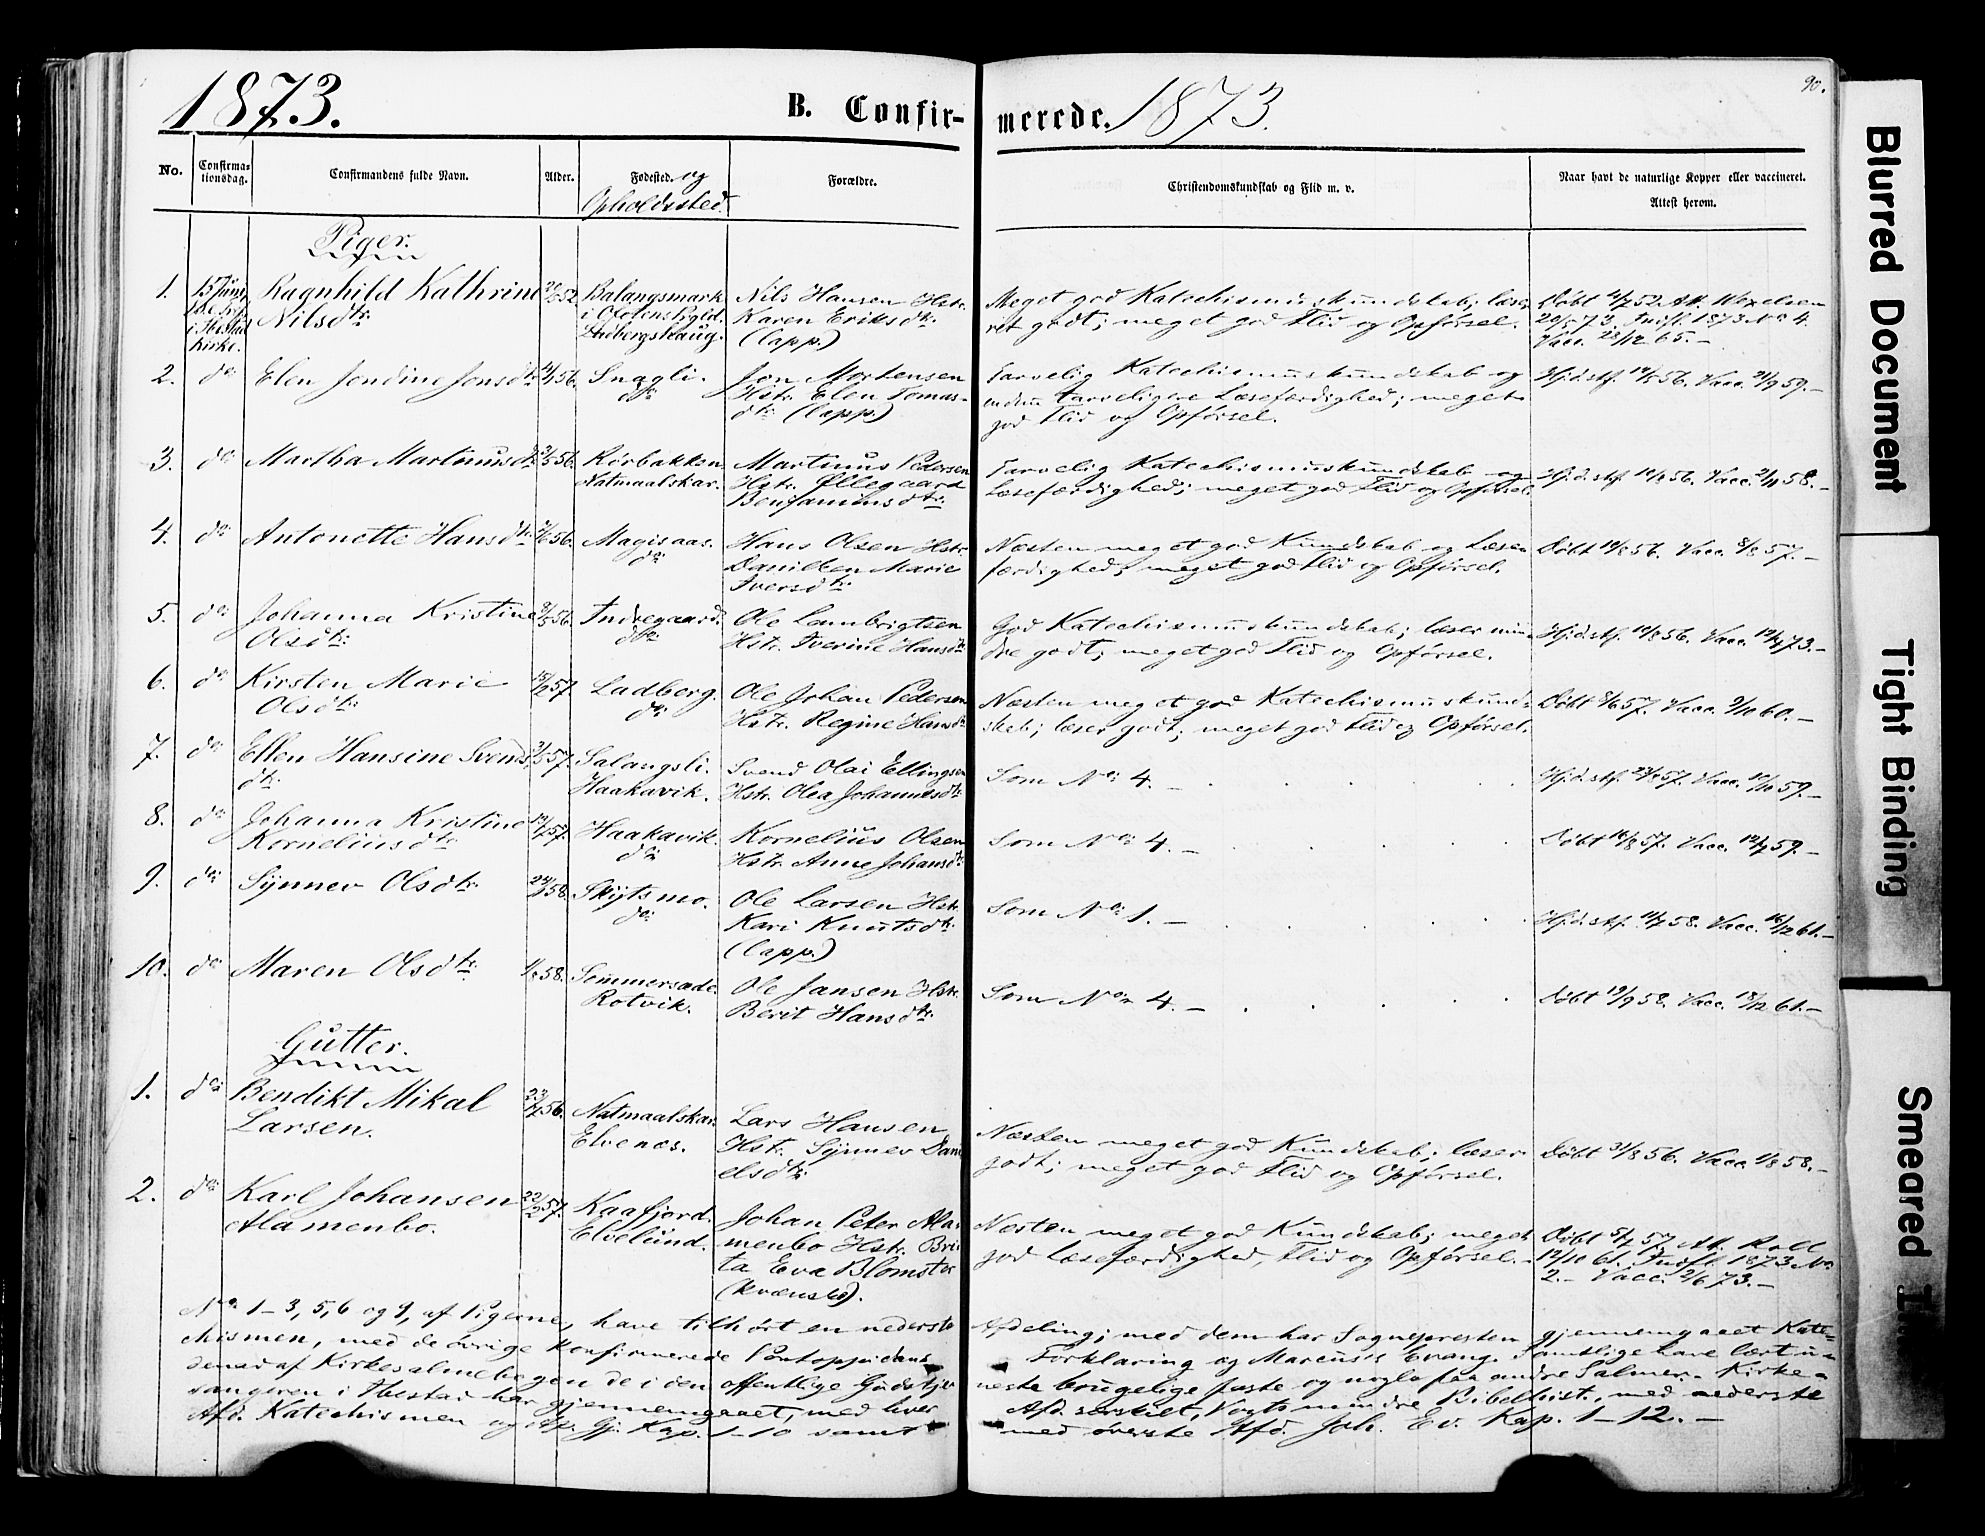 1873.
B. Confir-
merede. 1873.
90.
No.
Confirma-
tionsdag.
Confirmandens fulde Navn.
Alder.
Fødested. og
Opholdssted.
Forældre.
Christendomskundskab og Flid m. v.
Naar havt de naturlige Kopper eller vaccineret.
Attest herom.
Piger.
1.
15 Juni
i Ibestad
Kirke.
Ragnhild Kathrine
Nilsdtr.
52
Balangsmark
i
Nils Hansen Hstr.
Karen Eriksdtr.
(Lapp.)
Meget god Katechismuskundskab; læser
ret godt; meget god Flid og Opførsel.
Døbt 4/7 52. Att. Wexelsen
20/5 73. Indfl. 1873 No 4.
Vacc. 28/12 65.-
2.
do
Elen Jendine Jonsdtr.
56.
Snagli.
do
Jon Mortensen
Hstr. Elen Tomas-
dtr. (Lapp.)
Tarvelig Katechismuskundskab og
endnu tarveligere Læsefærdighed; meget
god Flid og Opførsel.
Hjd. stf. 56. Vacc. 21/9 59.-
3.
do
Martha Martinusdtr.
56.
Rørbakken.
Natmaalskar.
Martinus Pedersen
Hstr. Ellegaard
Benjaminsdtr.
Tarvelig Katechismuskundskab og
Læsefærdighed; meget god Flid og Opførsel.
Hjd. stf. 56. Vacc. 58.-
4.
do
Antonette Hansdtr.
56.
Magisaas.
do
Hans Olsen Hstr.
Danilken Marie
Iversdtr.
Næsten meget god Kundskab og Læse-
færdighed; meget god Flid og Opførsel.
Døbt 56. Vacc. 8/8 57.-
5.
do
Johanna Kristine
Olsdtr.
56.
Indregaard.
do
Ole Lambrigtsen
Hstr. Iverine Hansdtr.
God Katechismuskundskab; læser min-
dre godt; meget god Flid og Opførsel.
Hjd. stf. 56. Vacc. 73.-
6.
do
Kirsten Marie
Olsdtr.
15/2 57.
Ladberg.
do
Ole Johan Pedersen
Hstr. Regine Hansdtr.
Næsten meget god Katechismuskund-
skab; læser godt; meget god Flid og Opførsel.
Døbt 8/6 57. Vacc. 9/10 60.-
7.
do
Ellen Hansine Svends-
dtr.
57.
Salangsli.
Haakavik.
Svend Olai Ellingsen
Hstr. Olea Johannesdtr.
Som No 4.-
Hjd. stf. 57. Vacc. 59.-
8.
do
Johanna Kristine
Korneliusdtr.
57.
Haakavik.
do
Kornelius Olsen
Hstr. Anne Johansdtr.
Som No 4.-
Døbt 16/8 57. Vacc. 59.-
9.
do
Synnev Olsdtr.
58.
Skøjtsmo.
do
Ole Larsen Hstr.
Kari Knutsdtr.
(Lapp.)
Som No 1.-
Hjd. stf. 58. Vacc. 16/12 61.-
10.
do
Maren Olsdtr.
1/8 58.
Sommersæde.
Rotvik.
Ole Jansen Hstr.
Berit Hansdtr.
Som No 4.-
Døbt 19/9 58. Vacc. 18/12 61.-
Gutter.
1.
do
Bendikt Mikal
Larsen.
23/7 56.
Natmaalskar.
Elvenæs.
Lars Hansen
Hstr. Synnev Dani
elsdtr.
Næsten meget god Kundskab; læser
godt; meget god Flid og Opførsel.
Døbt 31/8 56. Vacc. 58.-
2.
do
Karl Johansen
Alamenbo.
22/2 57.
Kaafjord.
Elvelund.
Johan Peter Ala-
menbo Hstr. Bri-
ta Eva Blomster
(Kvænsld).
Næsten meget god Kundskab; meget
god Læsefærdighed, Flid og Opførsel.-
Døbt 57. Att. Roll
12/10 61. Indfl. 1873 No
2.- Vacc. 2/6 73.-
No. 1-3, 5, 6 og 9, af Pigerne, have tilhørt en nederste Afdeling; med dem har Sognepresten gjennemgaaet Kate-
chismen, med de øvrige Konfirmerede Pontoppidans Forklaring og Marcus's Evang. Samtlige have lært u-
denad af Kirkesalmebogen de i den offentlige Gudstje- neste brugelige faste og nogle paa andre Salmer. Kirke-
sangeren i Ibestad har gjennemgaaet, med hver Afd. særskilt, Vogts mindre Bibelhist., med nederste
Afd. Katechismen og Ap. Gj. Kap. 1-10 samt med øverste Afd. Joh. Ev. Kap. 1-12.-
Blurred Document
Tight Binding
Smeared